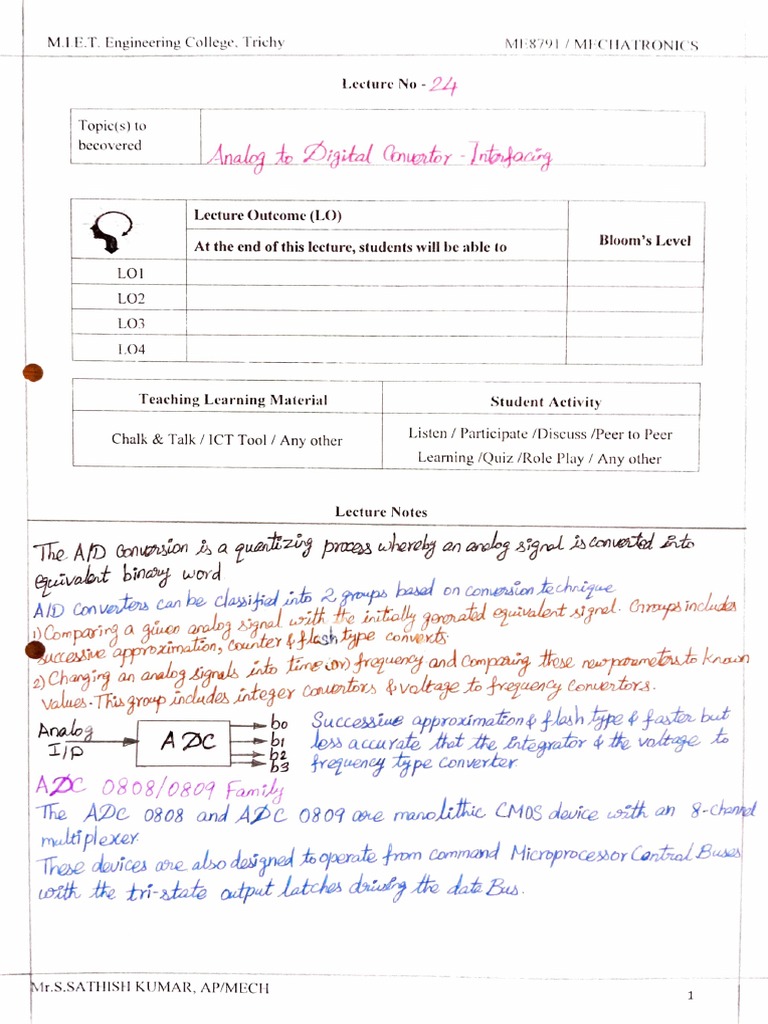 M.I.E.T. Engineering College, Trichy ME8791 / MECHATRONICS
Lecture No - 24
Topic(s) to becovered
Analog to Digital Convertor - Interfacing
Lecture Outcome (LO)
At the end of this lecture, students will be able to
Bloom's Level
LO1
LO2
LO3
LO4
Teaching Learning Material Student Activity
Chalk & Talk / ICT Tool / Any other
Listen / Participate /Discuss /Peer to Peer
Learning /Quiz /Role Play / Any other
Lecture Notes
The A/D conversion is a quantizing process whereby an analog signal is converted into
equivalent binary word.
A/D converters can be classified into 2 groups based on conversion technique
1) Comparing a given analog signal with the initially generated equivalent signal. Groups includes
successive approximation, counter & flash type converts.
2) Changing an analog signals into time (or) frequency and comparing these new parameters to known
values. This group includes integer convertors & voltage to frequency convertors.
Analog
I/P
ADC
b0
b1
b2
b3
Successive approximation & flash type & faster but
less accurate that the integrator & the voltage to
frequency type converter.
ADC 0808/0809 Family
The ADC 0808 and ADC 0809 are manolithic CMOS device with an 8-channel
multiplexer.
These devices are also designed to operate from command Microprocessor Control Buses
with the tri-state output latches driving the data Bus.
Mr.S.SATHISH KUMAR, AP/MECH
1